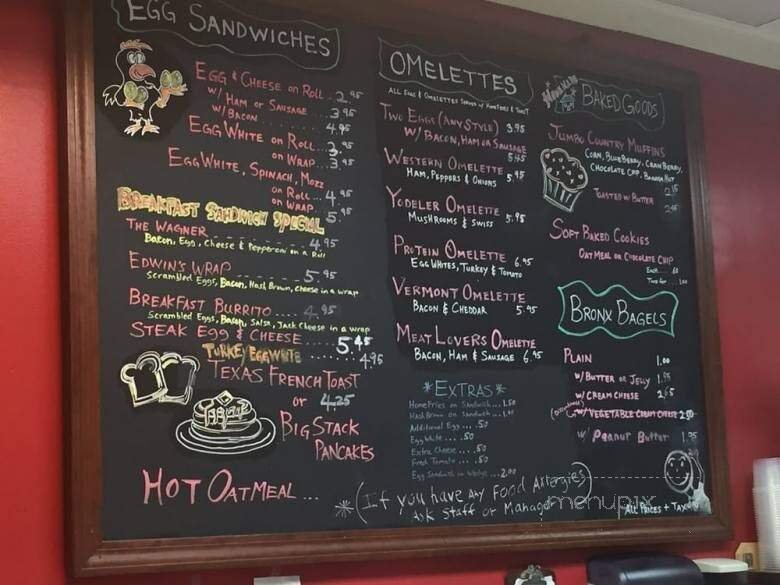 EGG SANDWICHES
EGG & CHEESE on ROLL... 2.95
W/ HAM or SAUSAGE ... 3.95
W/ BACON ........ 4.95
EGG WHITE on ROLL... 3.95
on WRAP... 3.95
EGG WHITE, SPINACH, MOZZ
on ROLL... 4.95
on WRAP... 5.
BREAKFAST SANDWICH SPECIAL
THE WAGNER ------- 4.95
Bacon, Egg, Cheese & Pepperoni on a Roll
EDWIN'S WRAP ------- 5.95
Scrambled Eggs, Bacon, Hash Brown, cheese in a wrap
BREAKFAST BURRITO .... 4.95
Scrambled Eggs, Bacon, Salsa, Jack Cheese in a wrap
STEAK EGG & CHEESE ..... 5.45
TURKEY EGG WHITE ....... 4.95
TEXAS FRENCH TOAST
or 4.25
BIG STACK
PANCAKES
HOT OATMEAL ...
OMELETTES
ALL EGGS & OMELETTES SERVED w/ HOMEFRIES & TOAST
TWO EGGS (ANY STYLE) 3.95
W/ BACON, HAM OR SAUSAGE
5.45
WESTERN OMELETTE
HAM, PEPPERS & ONIONS 5.95
YODELER OMELETTE
MUSHROOMS & SWISS 5.95
PROTEIN OMELETTE 6.45
EGG WHITES, TURKEY & TOMATO
VERMONT OMELETTE
BACON & CHEDDAR 5.95
MEAT LOVERS OMELETTE
BACON, HAM & SAUSAGE 6.95
*EXTRAS*
Home Fries on Sandwich .. 1.50
Hash Brown on Sandwich ..
Additional Egg .... .50
Egg White .... .50
Extra Cheese .... .50
Fresh Tomato .... .50
Egg Sandwich on Wedge ... 2.00
*(If you have Any Food Allergies)
Ask Staff or Manager
BAKED GOODS
JUMBO COUNTRY MUFFINS
CORN, BLUEBERRY, CRANBERRY,
CHOCOLATE CHIP, BANANA NUT
TOASTED W/ BUTTER
SOFT BAKED COOKIES
OATMEAL OR CHOCOLATE CHIP
Each
Two for
BRONX BAGELS
PLAIN 1.00
W/ BUTTER or JELLY 1.95
W/ CREAM CHEESE 2.65
W/ VEGETABLE CREAM CHEESE 2.50
W/ Peanut Butter 1.95
ALL PRICES + TAX
menupix